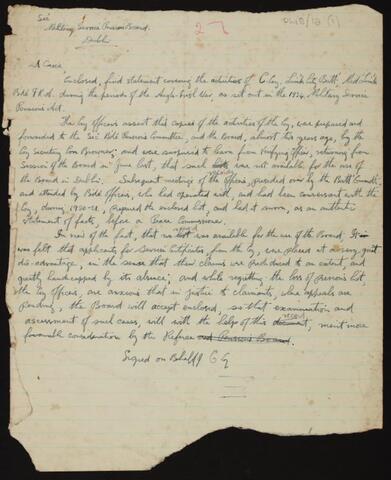 27
Sec
Military Service Pensions Board.
Dublin
A Cara
Enclosed, find statement covering the activities of C. Coy, Limk City Batt, Mid Limk
Bde I.R.A. during the periods of the Anglo-Irish War, as set out in the 1934, Military Service
Pensions Act.
The Coy officers assert that copies of the activities of the Coy, was prepared and
forwarded to the Sec. Bde Pensions Committee, and the Board, almost two years ago, by the
Coy Secretary and was surprised to learn from Verifying Officer, returning from
Session of the Board in June last, that such was not available for the use of
the Board in Dublin. Subsequent meetings of the Officers, presided over by the Batt Comdt
and attended by Bde Officers, who had operated with, and had been conversant with the
Coy, during 1920-21, prepared the enclosed list, and had it sworn, as an authentic
Statement of facts, before a Peace Commissioner.
In view of the fact, that no was available for the use of the Board, It
was felt that applicants for Service Certificates, from the Coy, was placed at a very great
dis-advantage, in the sense that their claims was prejudiced to an extent, and
greatly handicapped by its absence; and while regretting the loss of previous list,
the Coy Officers, are anxious that in justice to claimants, whose appeals are
pending, the Board will accept enclosed, so that examination and
assessment of such cases, will with the help of this record, merit more
favourable consideration by the Referee and Pensions Board.
Signed on Behalf of C Coy